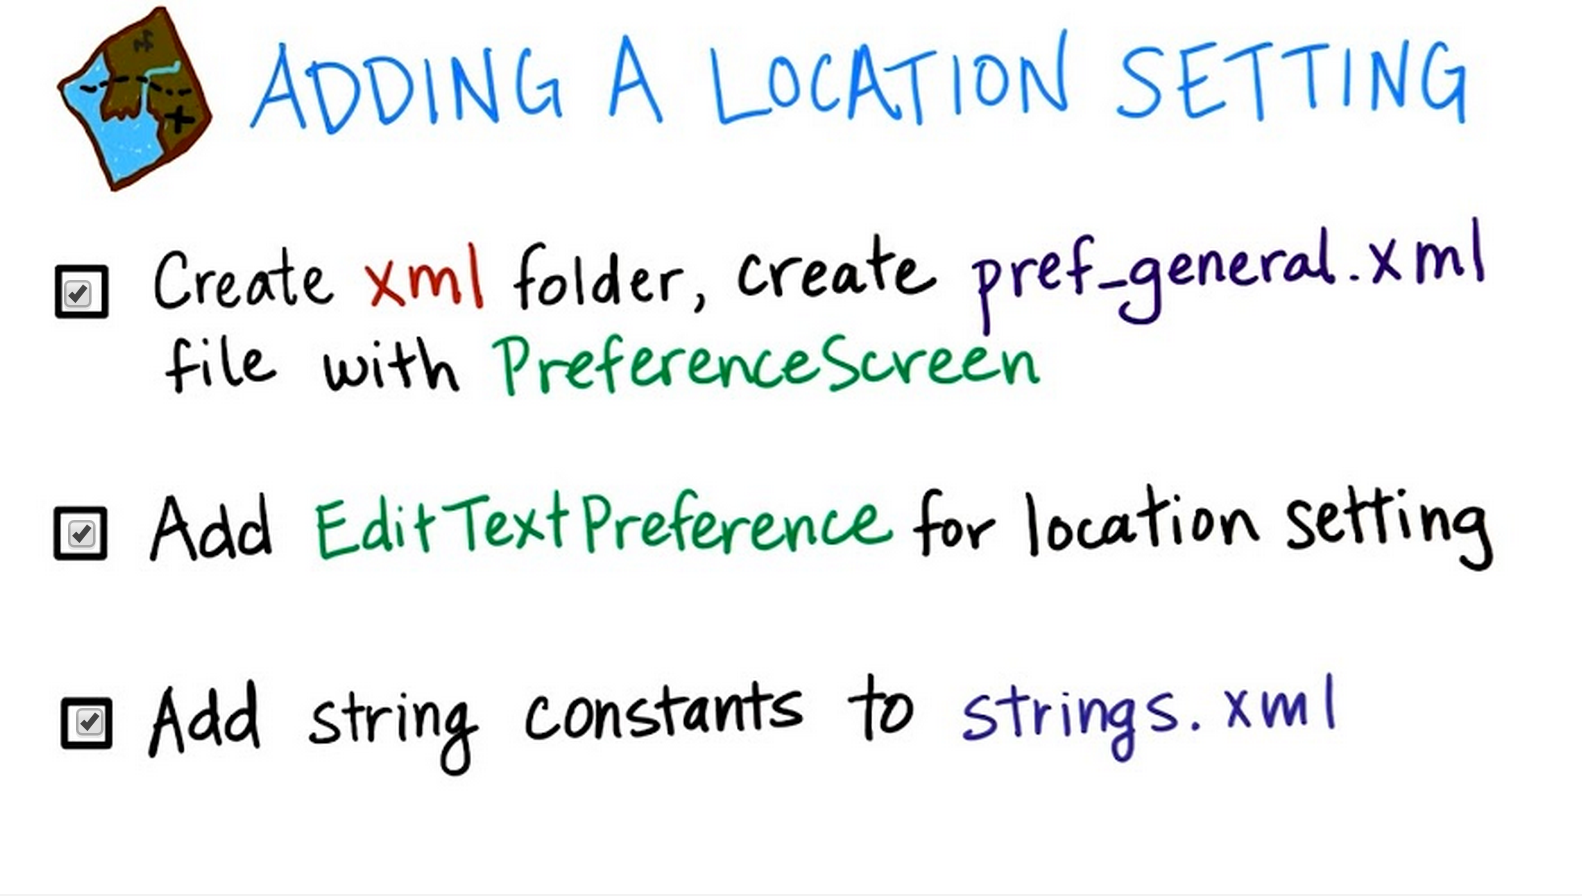 ADDING A LOCATION SETTING
Create xml folder, create pref_general.xml
file with PreferenceScreen
Add EditTextPreference for location setting
Add string constants to strings.xml